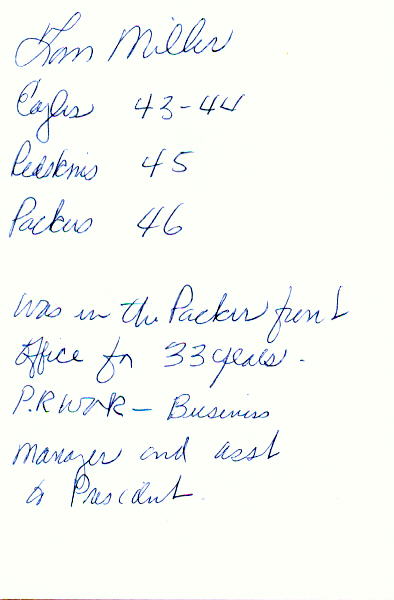 Tom Miller
Eagles 43-44
Redskins 45
Packers 46
Was in the Packer front
office for 33 years.
P.R WORK - Business
manager and asst
to President.